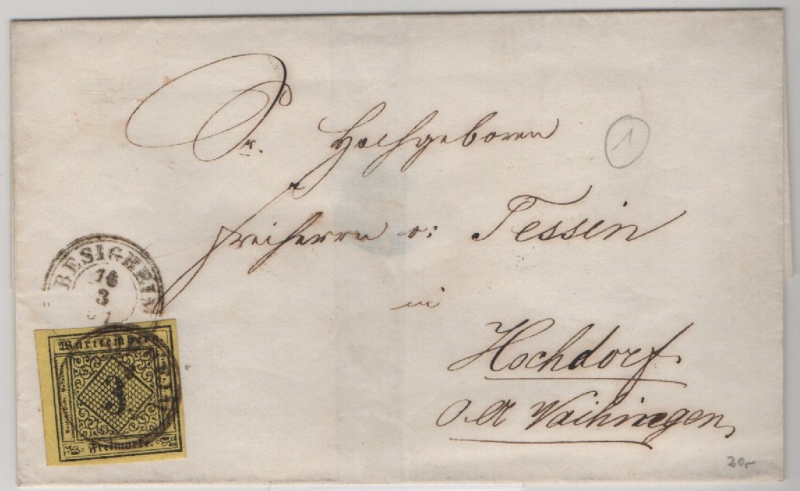 Sr. Hochgeboren
1
Freiherrn v: Tessin
in
Hochdorf.
O.A Vaihingen,
BESIGHEIM
16
3
Württemberg
3
Freimarke
20.-